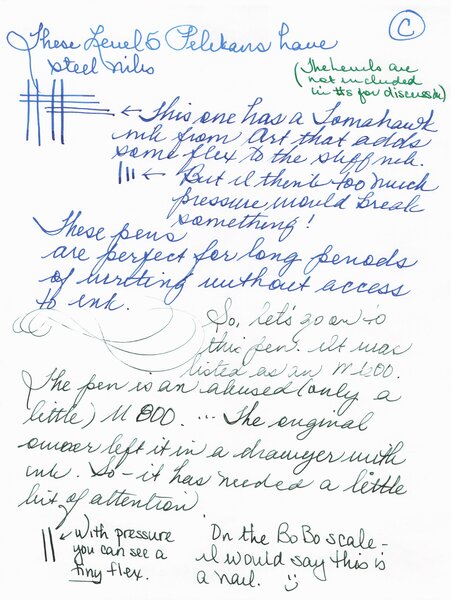 C
These Level 5 Pelikans have
steel nibs
(The Levels are
not included
in #s for discussion)
← This one has a Tomahawk
nib from Art that adds
some flex to the stiff nib.
← But I think too much
pressure would break
something!
These pens
are perfect for long periods
of writing without access
to ink.
So, let's go on to
this pen. It was
listed as an M200.
The pen is an abused (only a
little) M 800. ... The original
owner left it in a drawyer with
ink. So - it has needed a little
bit of attention.
← With pressure
you can see a
tiny flex.
On the BoBo scale -
I would say this is
a nail.